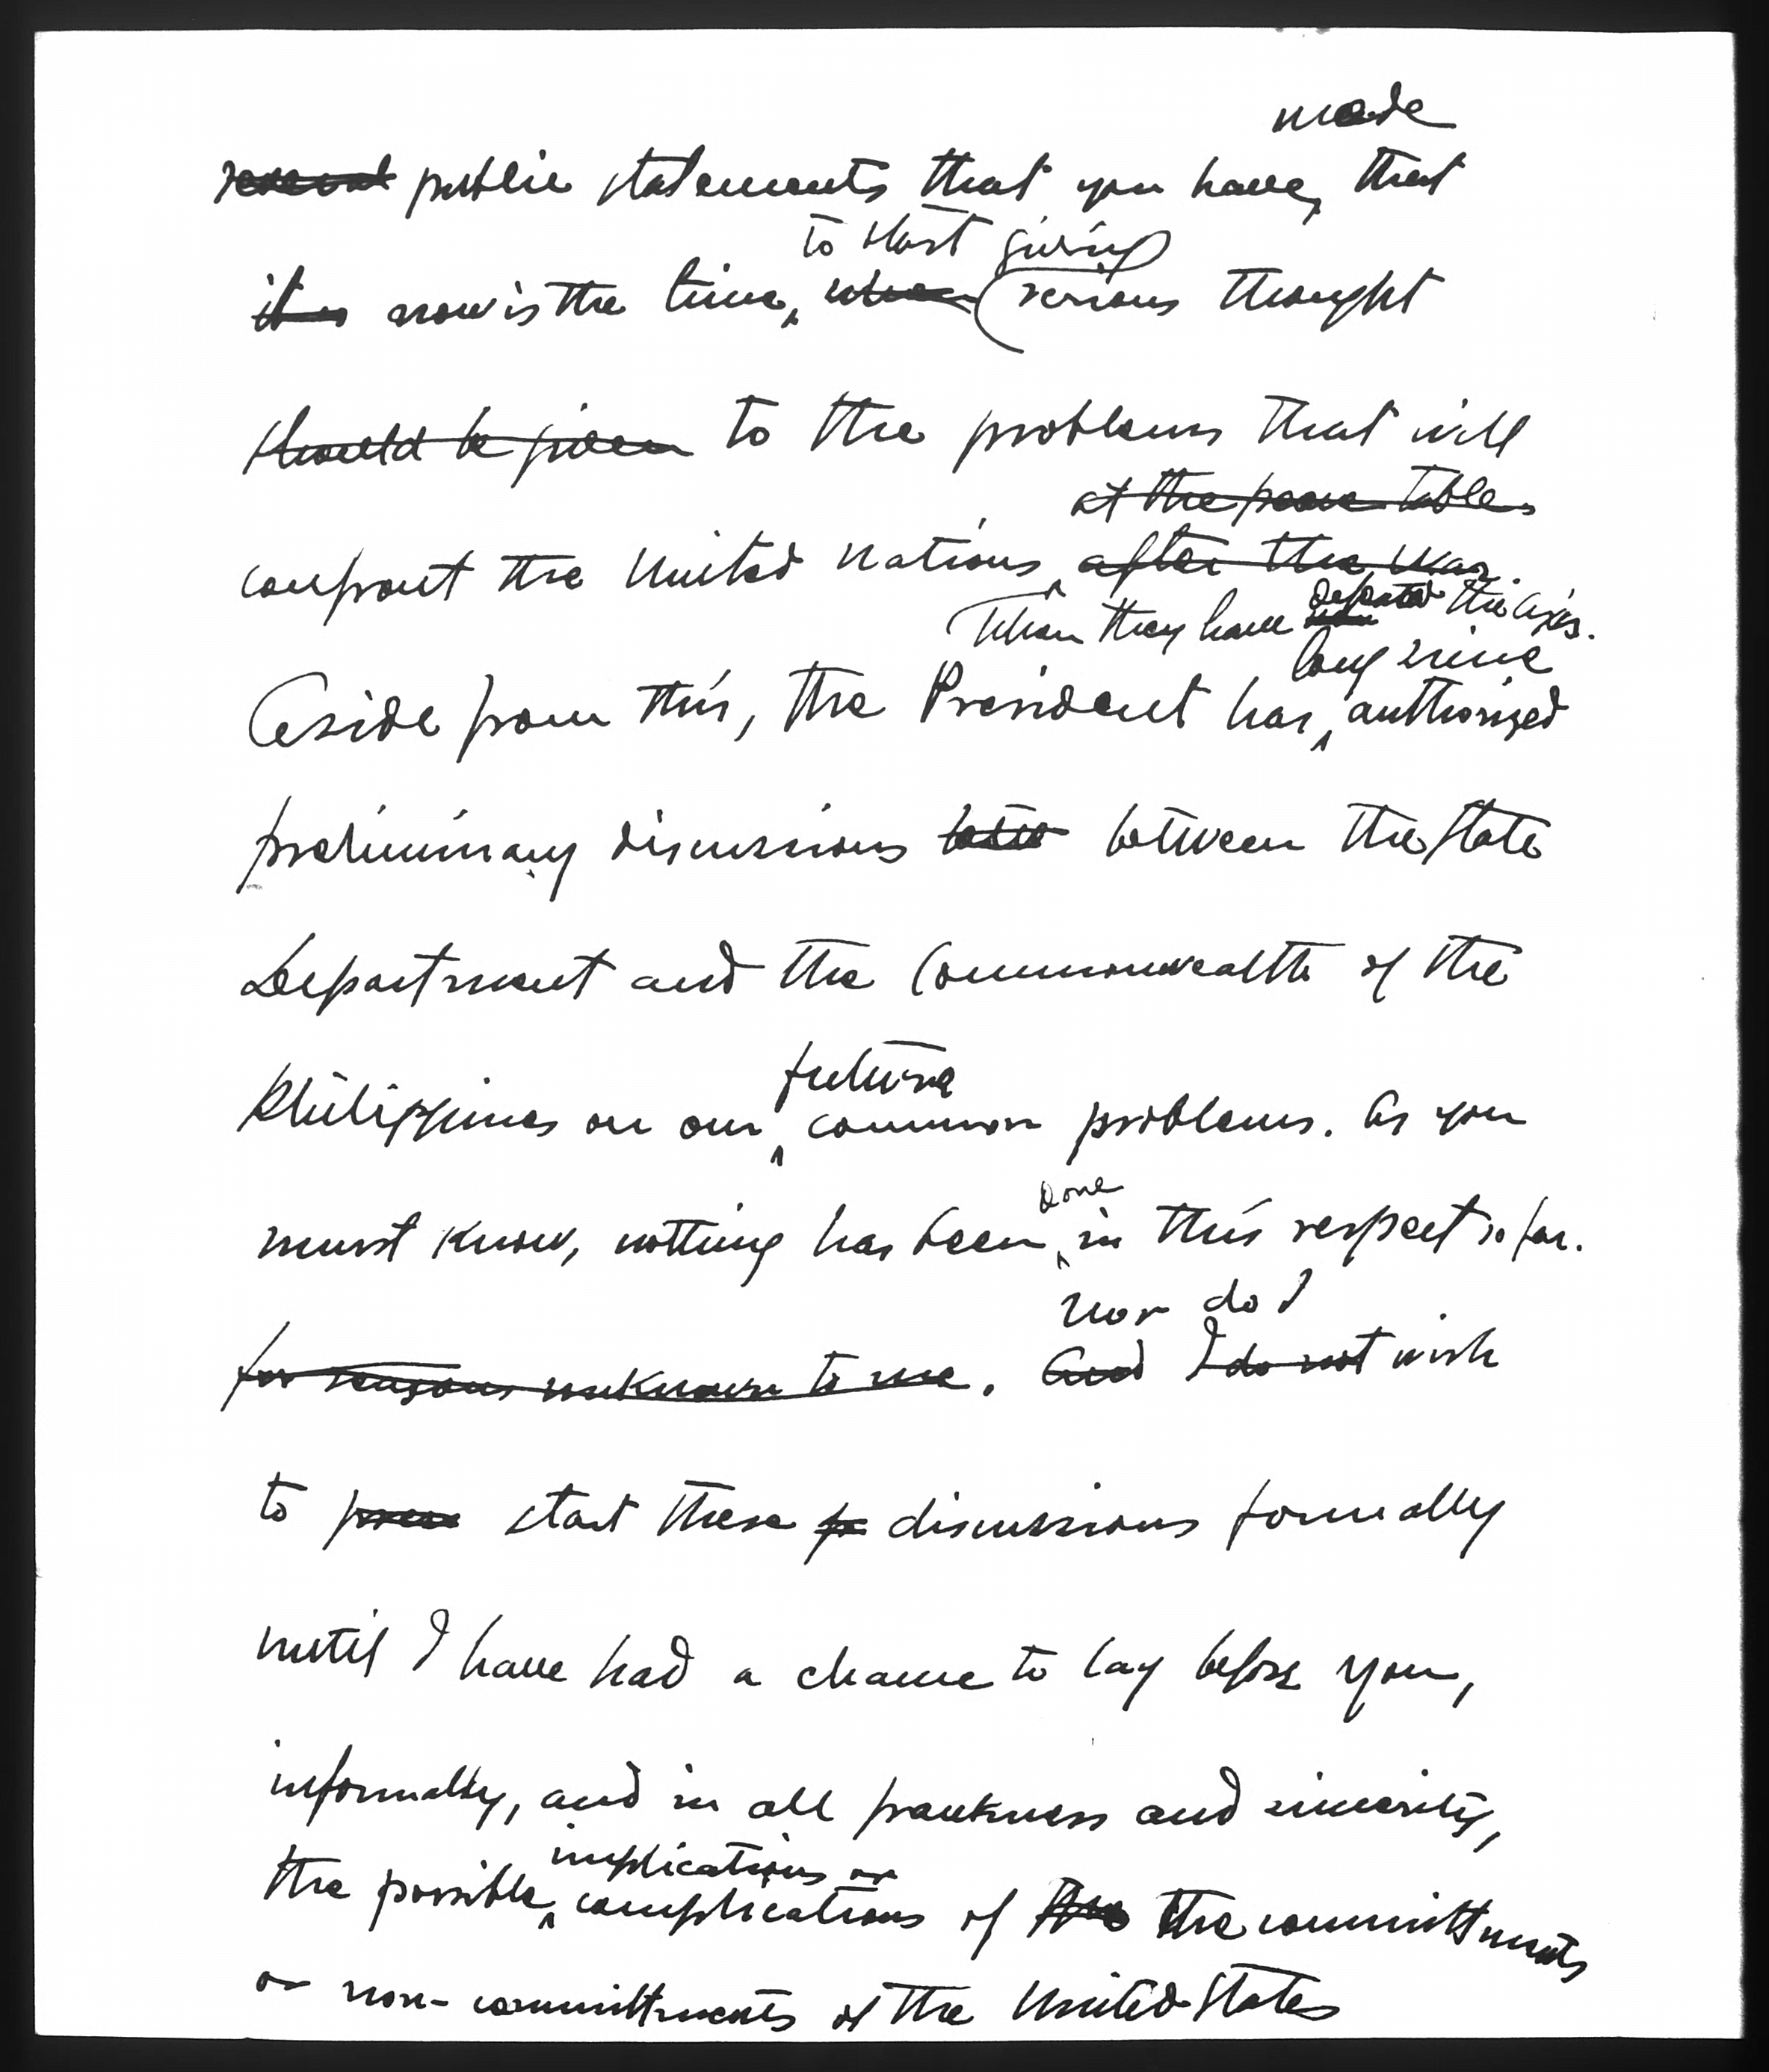 made
several public statements that you have, that
to start giving
it is now is the time, when serious thought
should be given to the problems that will
at the peace table
confront the United Nations after the war.
When they have defeated the Axis.
long since
Aside from this, the President has authorized
preliminary discussions betw between the State
Department and the Commonwealth of the
future
Philippines on our common problems. As you
done
must know, nothing has been in this respect so far.
nor do I
for reasons unknown to me. And I do not wish
to start these discussions formally
until I have had a chance to lay before you,
informally, and in all frankness and sincerity,
implications or
the possible complications of the the committments
or non-committments of the United States